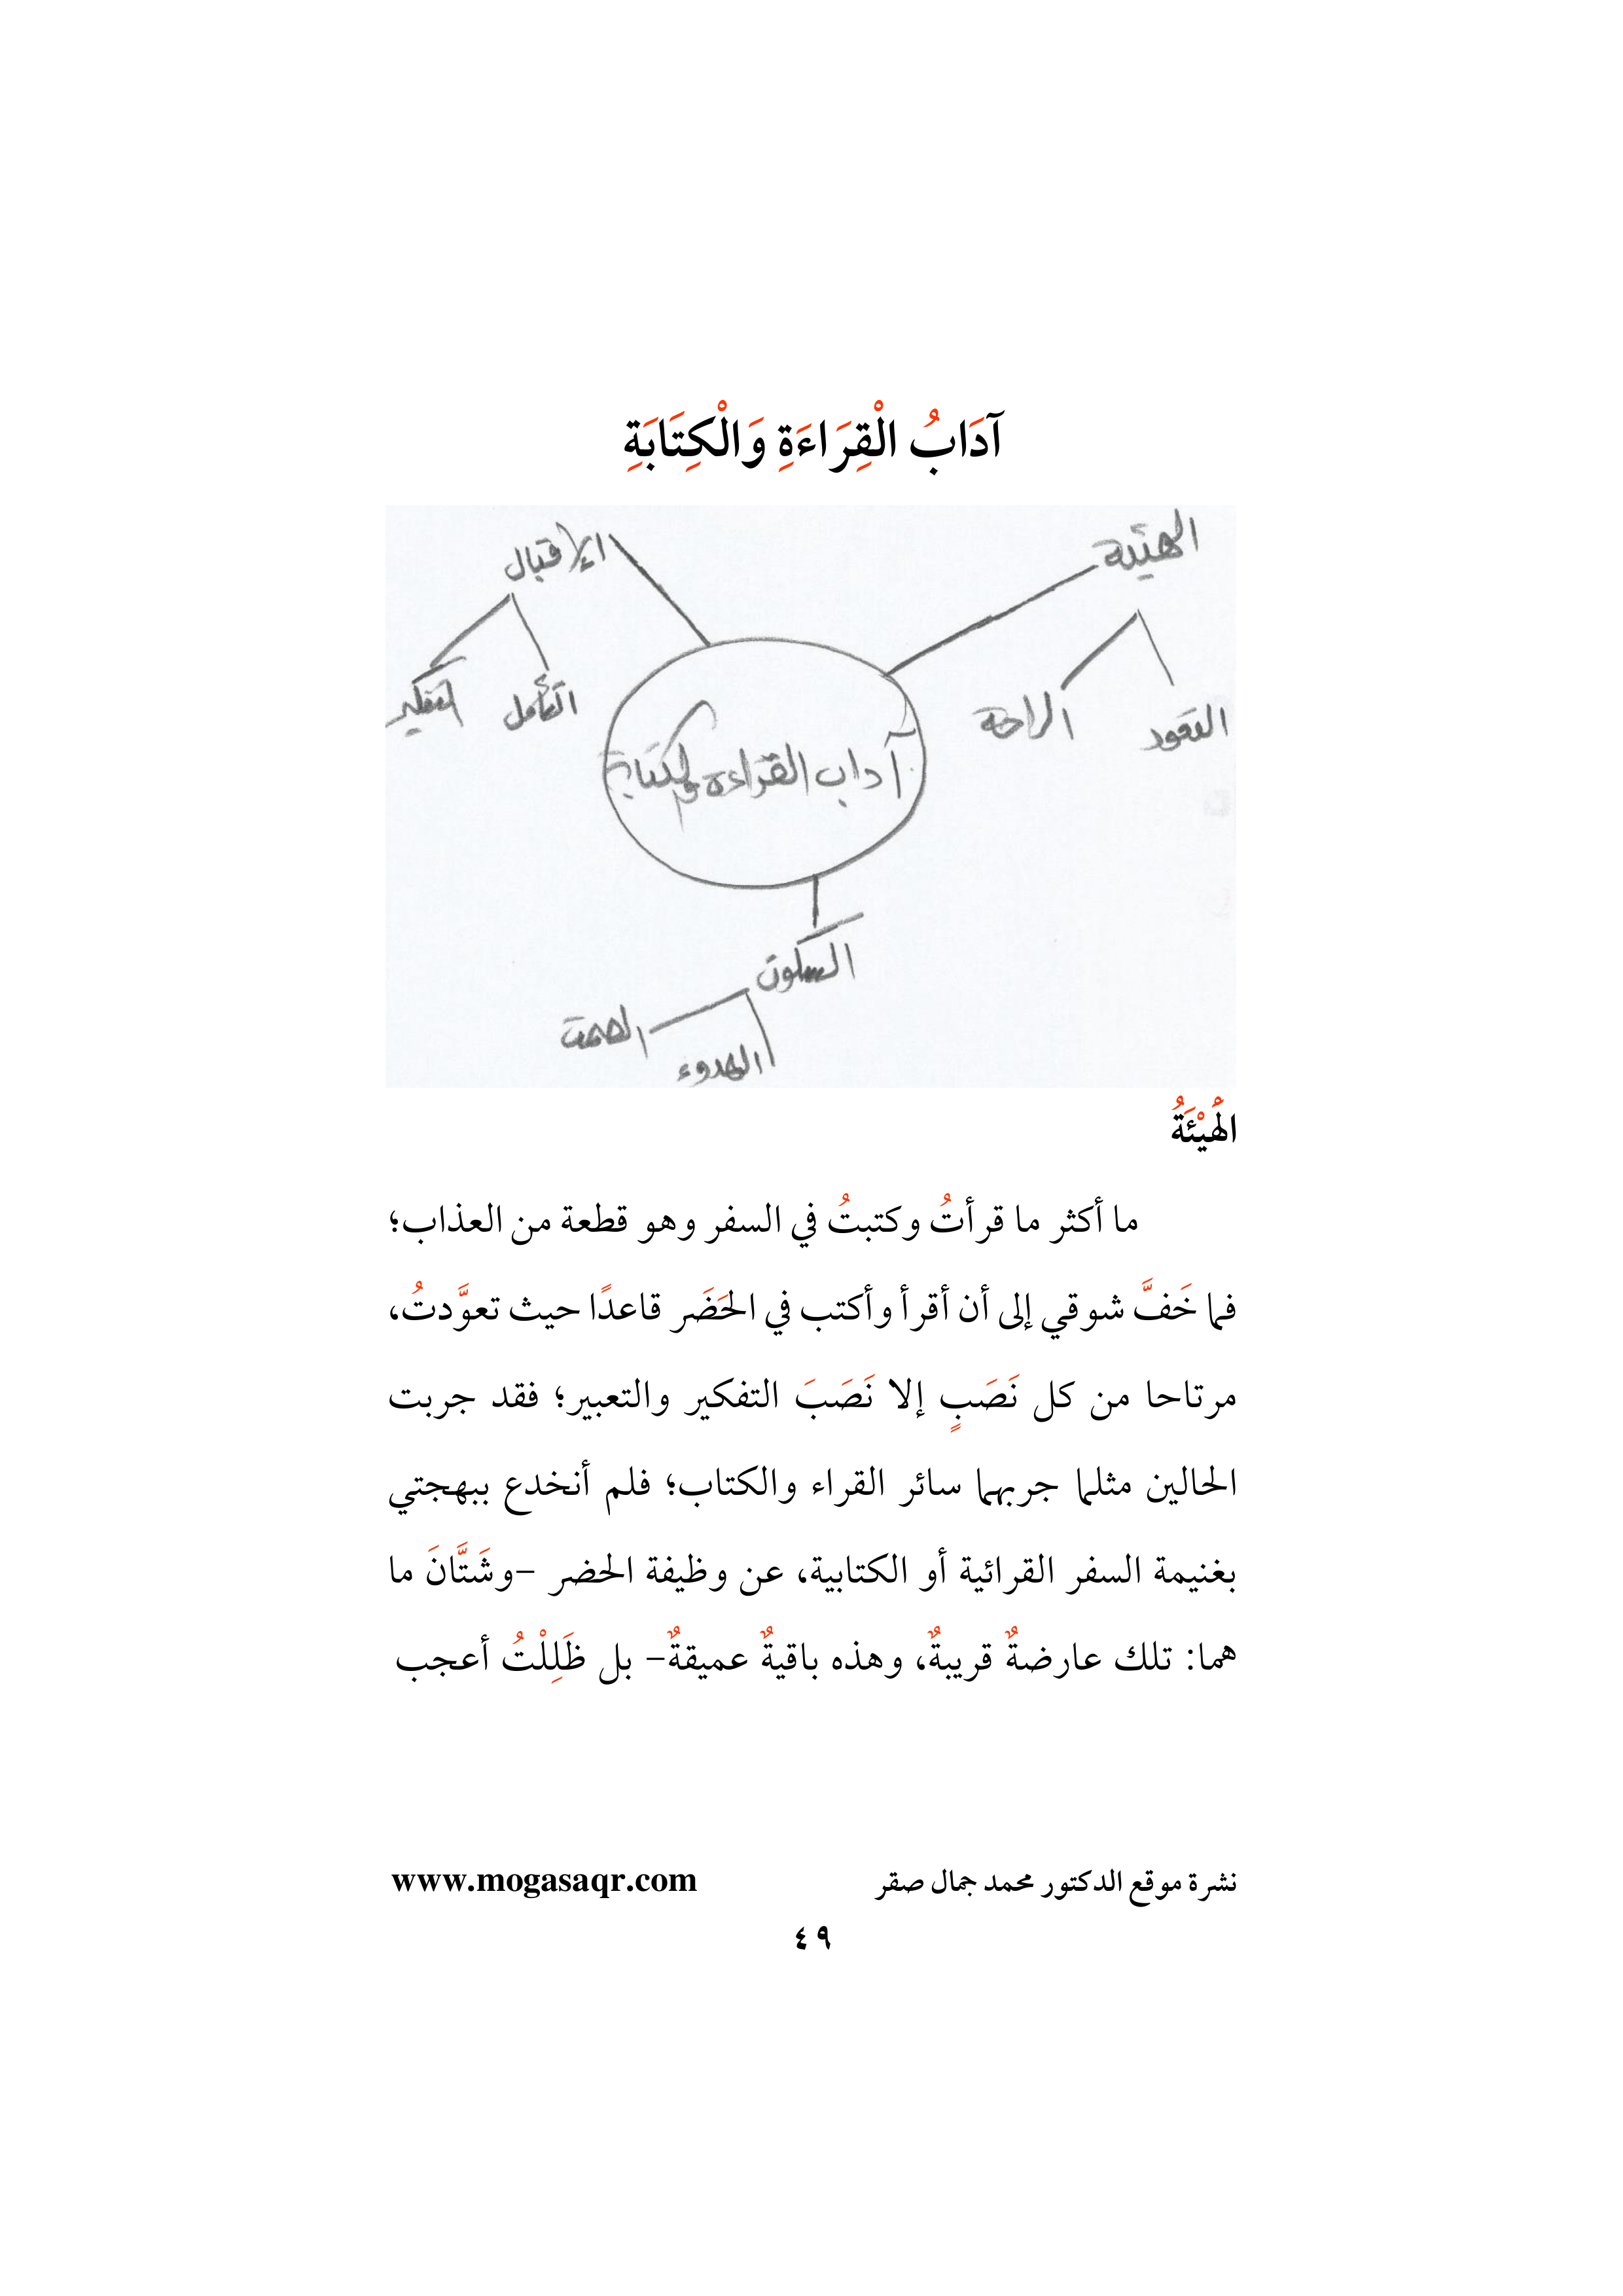 آدَابُ الْقِرَاءَةِ وَالْكِتَابَةِ
الهيئة
القعود
الراحة
الإقبال
التأمل
التفكير
آداب القراءة والكتابة
السكون
الهدوء
الصمت
الْهَيْئَةُ
ما أكثر ما قرأتُ وكتبتُ في السفر وهو قطعة من العذاب؛
فما خَفَّ شوقي إلى أن أقرأ وأكتب في الحَضَر قاعدًا حيث تعوَّدتُ،
مرتاحا من كل نَصَبٍ إلا نَصَبَ التفكير والتعبير؛ فقد جربت
الحالين مثلما جربهما سائر القراء والكتاب؛ فلم أنخدع ببهجتي
بغنيمة السفر القرائية أو الكتابية، عن وظيفة الحضر -وشَتَّانَ ما
هما: تلك عارضةٌ قريبةٌ، وهذه باقيةٌ عميقةٌ- بل ظَلِلْتُ أعجب
نشرة موقع الدكتور محمد جمال صقر www.mogasaqr.com
٤٩